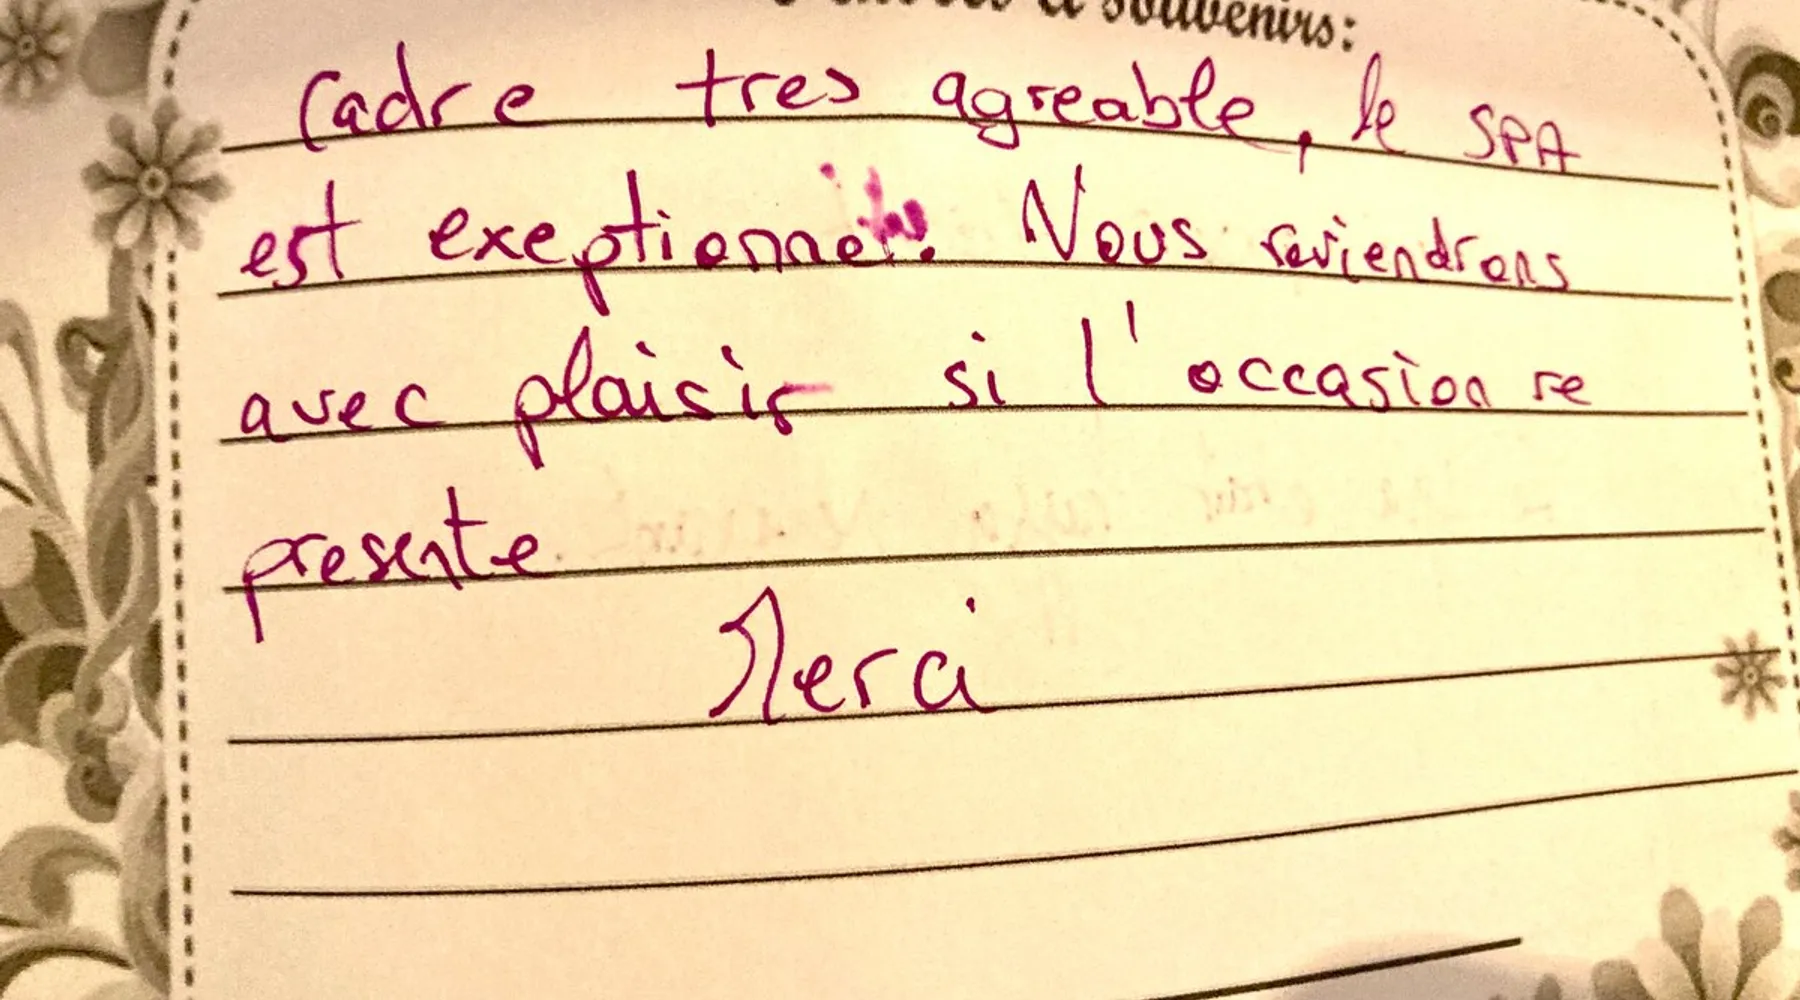 souvenirs:
Cadre tres agreable, le SPA
est exeptionnel. Nous reviendrons
avec plaisir si l'occasion se
presente
Merci